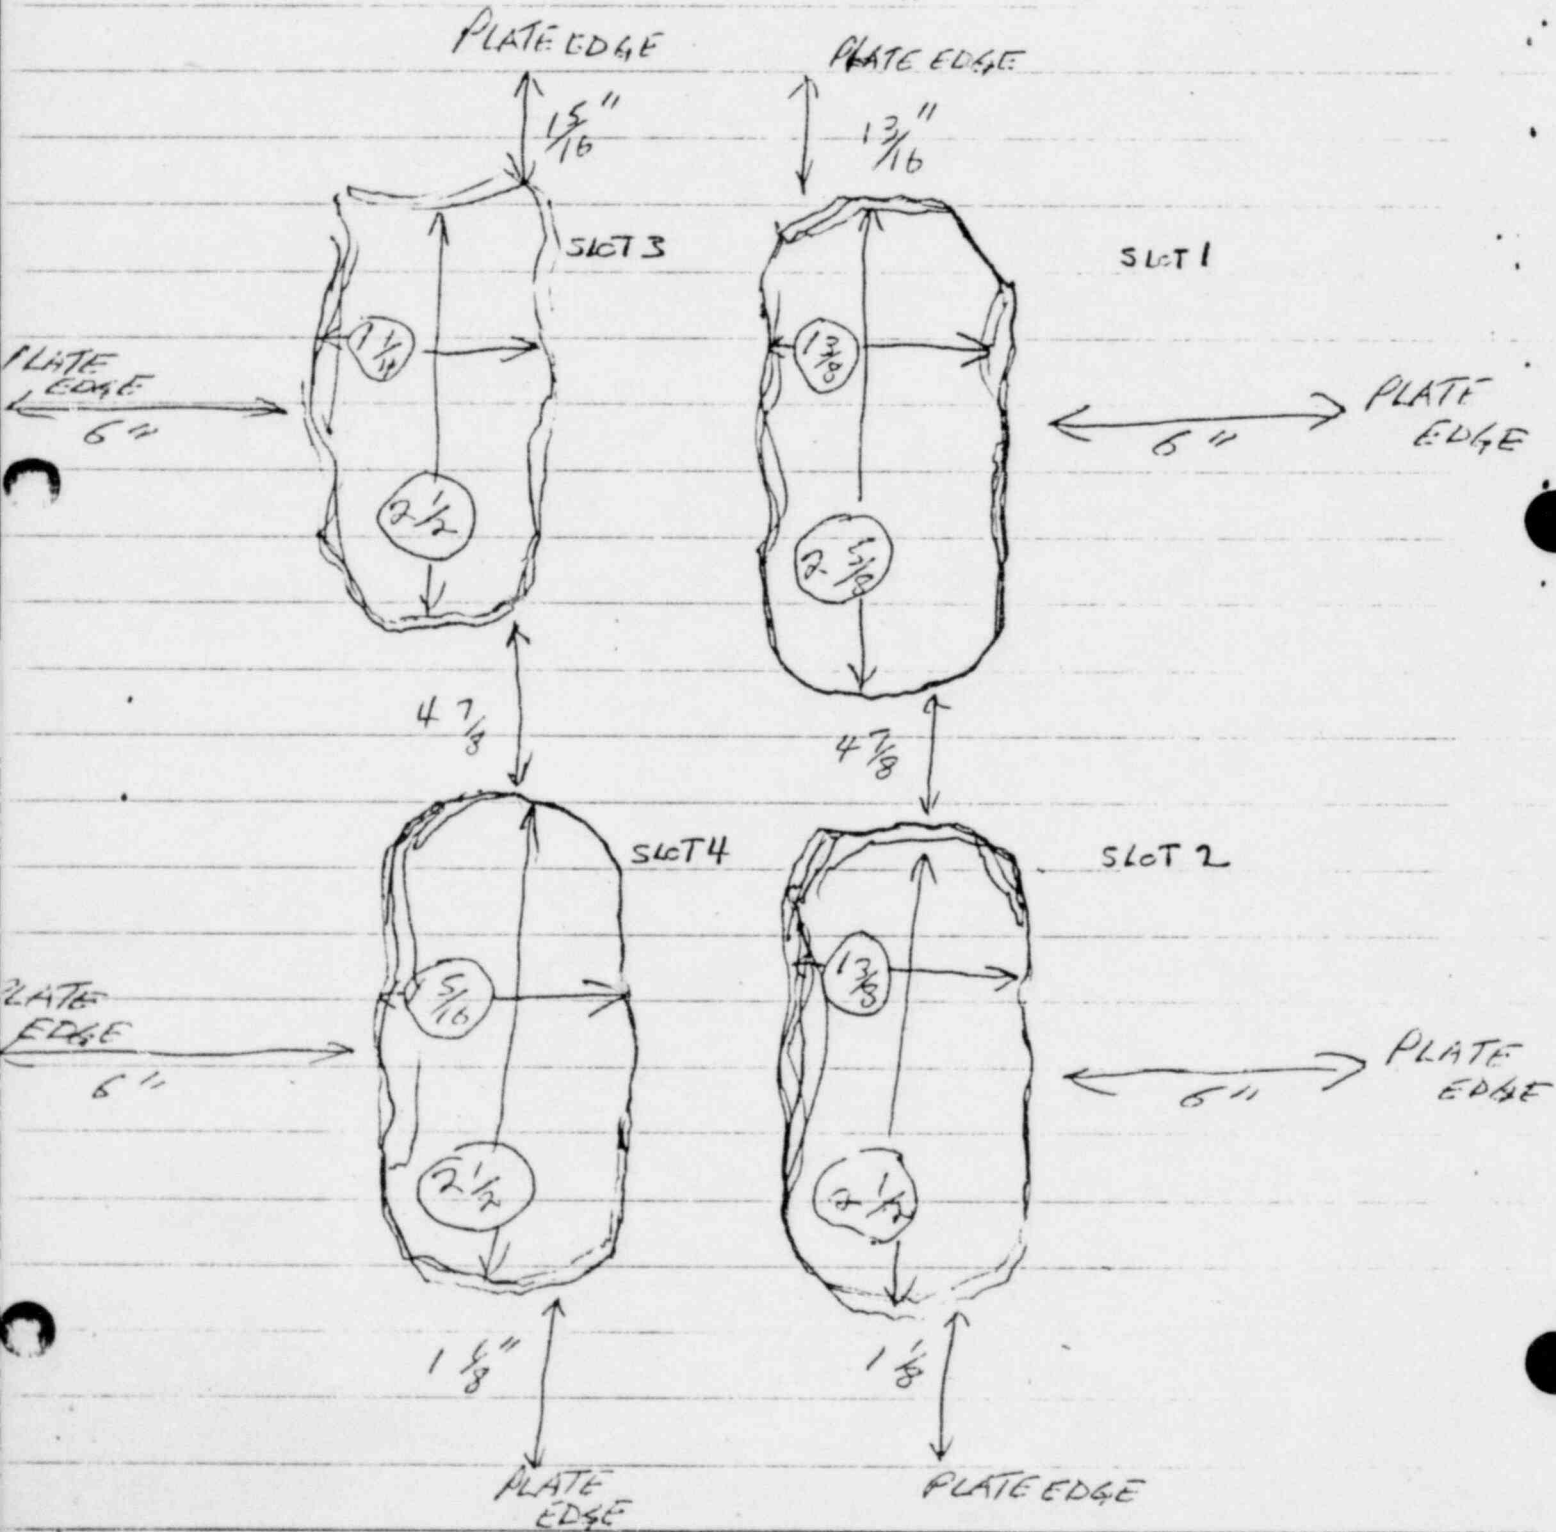 PLATE EDGE
PLATE EDGE
1 5/16"
1 3/16"
SLOT 3
SLOT 1
1 1/4
1 3/8
PLATE
EDGE
6"
PLATE
EDGE
6"
2 1/2
2 5/8
4 7/8
4 7/8
SLOT 4
SLOT 2
5/16
1 3/8
PLATE
EDGE
6"
PLATE
EDGE
6"
2 1/2
2 1/2
1 1/8"
1 1/8
PLATE
EDGE
PLATE EDGE